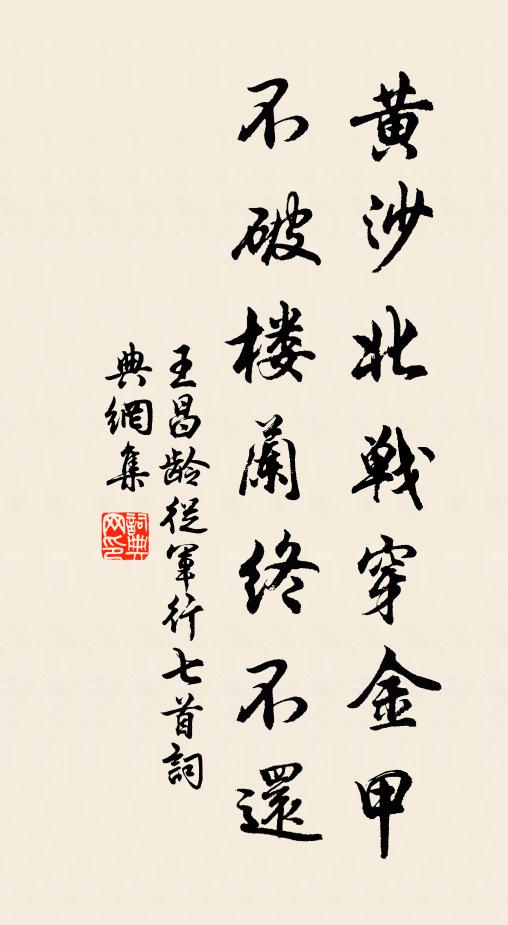 黄沙北戦穿金甲
不破楼蘭終不還
王昌龄従軍行七首詞
典網集
詞典
网印